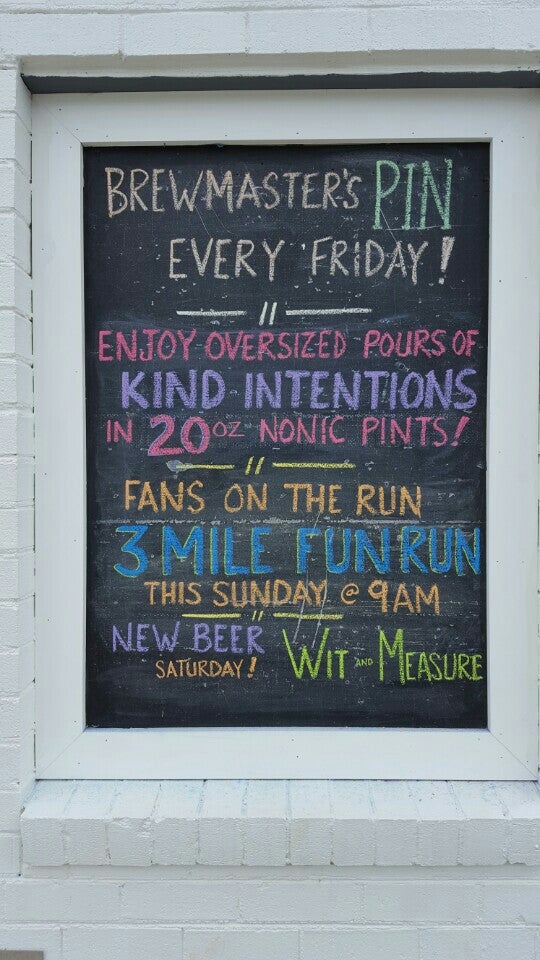 BREWMASTER'S PIN
EVERY FRIDAY!
//
ENJOY OVERSIZED POURS OF
KIND INTENTIONS
IN 20oz NONIC PINTS!
//
FANS ON THE RUN
3 MILE FUN RUN
THIS SUNDAY @ 9AM
//
NEW BEER
SATURDAY!
WIT AND MEASURE